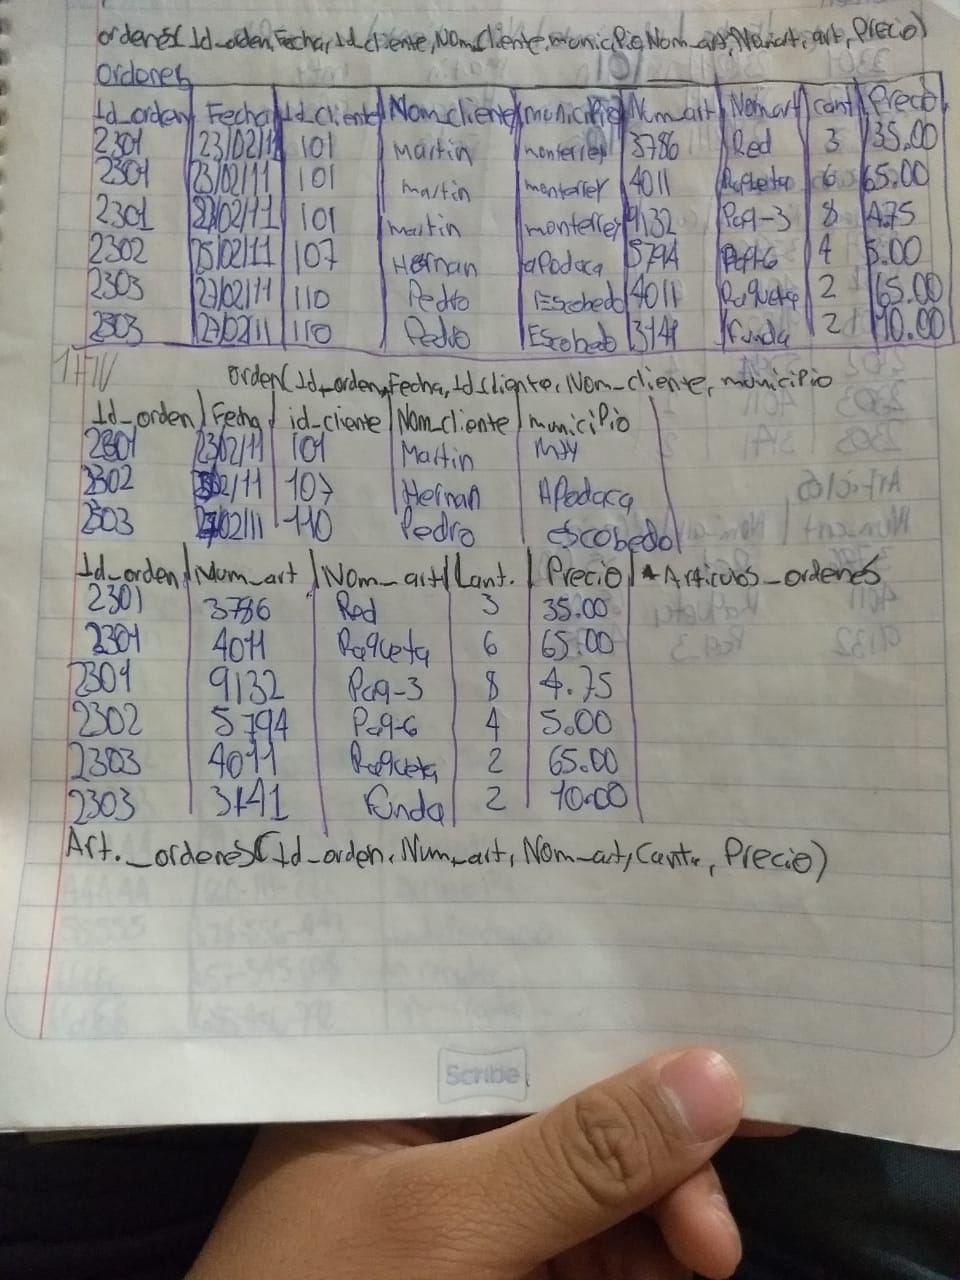 ordenes( Id_orden, Fecha, Id_cliente, Nom_Cliente, municipio, Num_art, Nom_art, cant, Precio)
Ordenes
Id_orden Fecha Id_cliente Nom_cliente municipio Num_art Nomart cant Precio
2301 23/02/11 101 Martin monterrey 3786 Red 3 35.00
2301 23/02/11 101 martin monterrey 4011 Raqueta 6 65.00
2301 23/02/11 101 martin monterrey 9132 Paq-3 8 4.75
2302 25/02/11 107 Hernan apodaca 5794 Paq-6 4 5.00
2303 27/02/11 110 Pedro Escobedo 4011 Raqueta 2 65.00
2303 27/02/11 110 Pedro Escobedo 3141 Funda 2 10.00
orden( Id_orden, Fecha, Id cliente, Nom_cliente, municipio
Id_orden Fecha id_cliente Nom_cliente municipio
2301 23/02/11 101 Martin Mty
2302 /02/11 107 Hernan APodaca
2303 27/02/11 110 Pedro escobedo
Id_orden Num_art Nom_art Cant. Precio * Articulos_ordenes
2301 3786 Red 3 35.00
2301 4011 Raqueta 6 65.00
2301 9132 Paq-3 8 4.75
2302 5794 Paq-6 4 5.00
2303 4011 Raqueta 2 65.00
2303 3141 Funda 2 10.00
Art._ordenes( Id_orden, Num_art, Nom_art, Cant., Precio)
Scribe